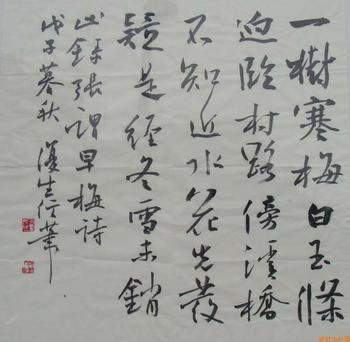 一樹寒梅白玉條
迥臨村路傍溪橋
不知近水花先發
疑是經冬雪未銷
此録張謂早梅詩
戊子暮秋漢生任筆